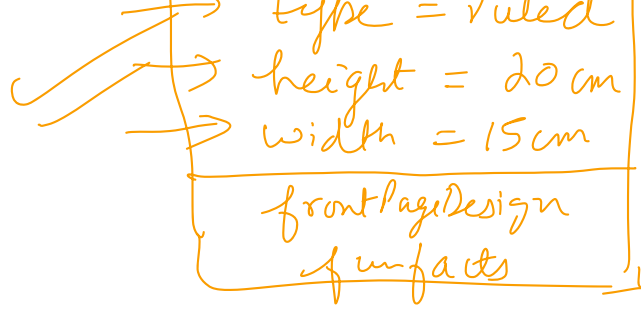 type = ruled
height = 20 cm
width = 15 cm
frontPageDesign
funfacts